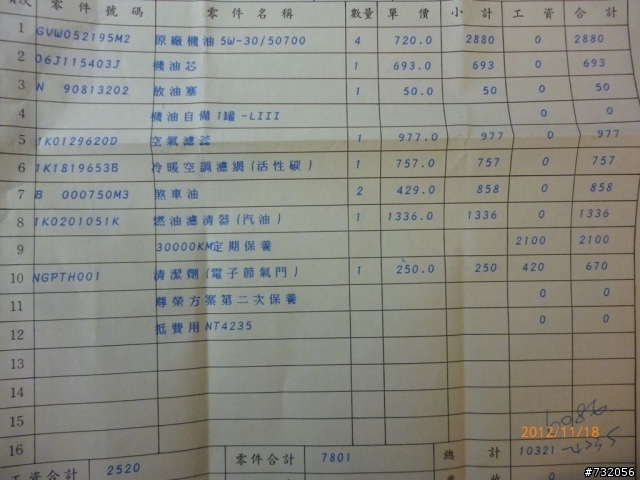 零件號碼 零件名稱 數量 單價 小計 工資 合計
1 GVW052195M2 原廠機油 5W-30/50700 4 720.0 2880 0 2880
2 06J115403J 機油芯 1 693.0 693 0 693
3 N 90813202 放油塞 1 50.0 50 0 50
4 機油自備1罐-LIII 0 0
5 1K0129620D 空氣濾蕊 1 977.0 977 0 977
6 1K1819653B 冷暖空調濾網(活性碳) 1 757.0 757 0 757
7 B 000750M3 煞車油 2 429.0 858 0 858
8 1K0201051K 燃油濾清器(汽油) 1 1336.0 1336 0 1336
9 30000KM定期保養 2100 2100
10 NGPTH001 清潔劑(電子節氣門) 1 250.0 250 420 670
11 尊榮方案第二次保養 0 0
12 抵費用NT4235 0 0
13
14
15
6086
2012/11/18
16
工資合計 2520 零件合計 7801 總計 10321 -4235
#732056